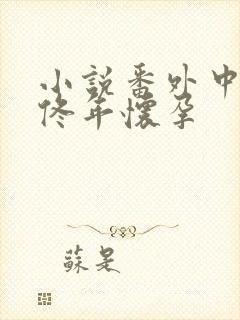 小說番外中
佟年懷孕
蘇是